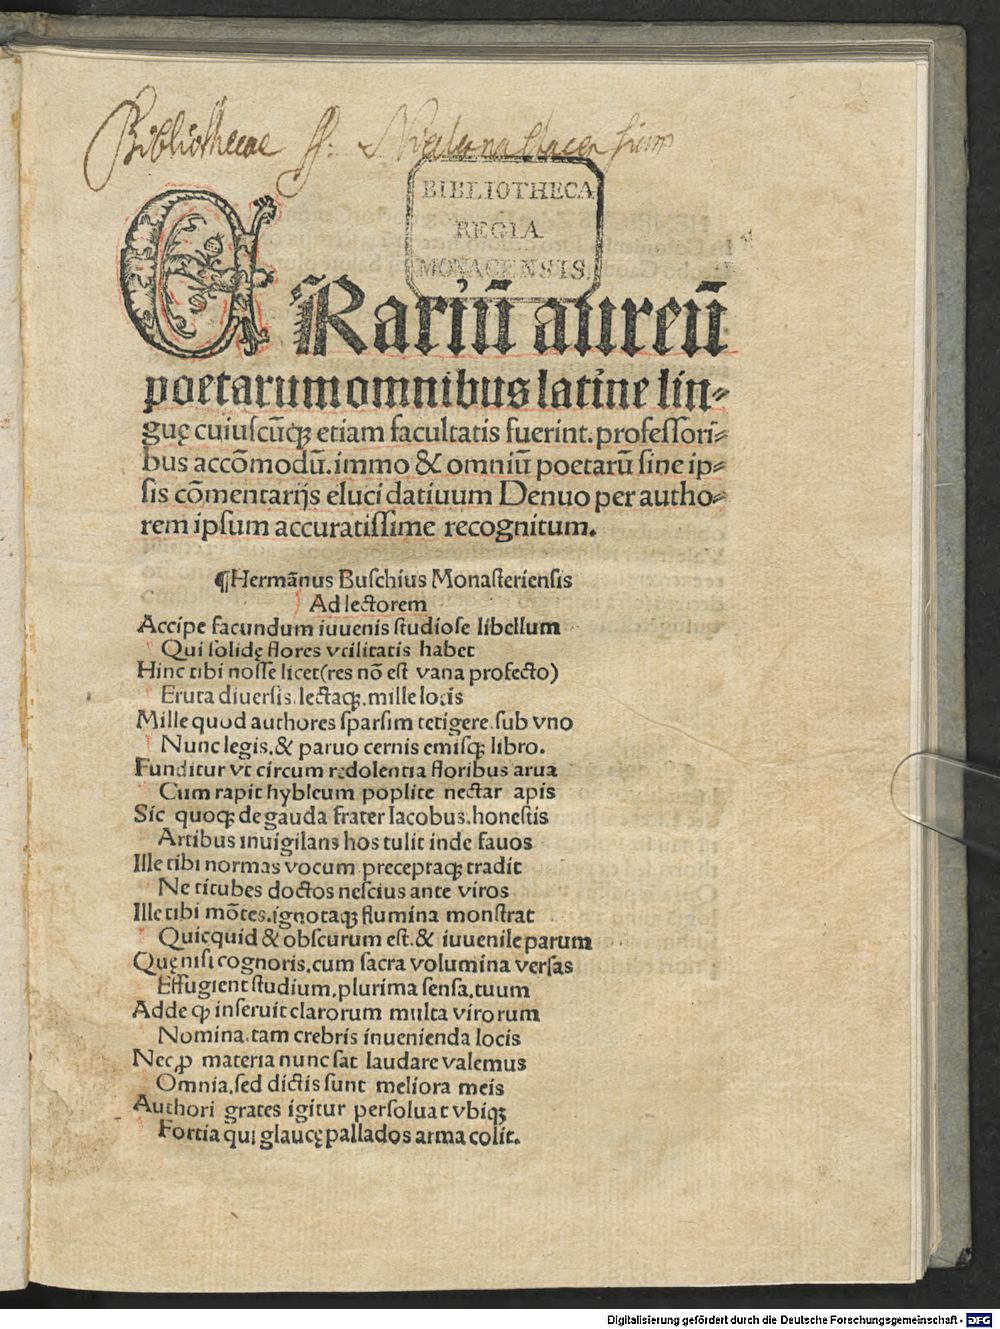 Bibliothecae
BIBLIOTHECA
REGIA
MONACENSIS.
ERariũ aureũ
poetarum omnibus latine lin⸗
guę cuiuscũqꝫ etiam facultatis fuerint. professori⸗
bus accõmodũ. immo & omniũ poetarũ sine ip⸗
sis cõmentarijs elucidatiuum Denuo per autho⸗
rem ipsum accuratissime recognitum.
¶Hermãnus Buschius Monasteriensis
Ad lectorem
Accipe facundum iuuenis studiose libellum
Qui solidę flores vtilitatis habet
Hinc tibi nosse licet(res nõ est vana profecto)
Eruta diuersis. lectaqꝫ. mille locis
Mille quod authores sparsim tetigere. sub vno
Nunc legis. & paruo cernis emisqꝫ libro.
Funditur vt circum redolentia floribus arua
Cum rapit hybleum poplite nectar apis
Sic quoqꝫ de gauda frater Iacobus. honestis
Artibus inuigilans hos tulit inde fauos
Ille tibi normas vocum preceptaqꝫ tradit
Ne titubes doctos nescius ante viros
Ille tibi mõtes. ignotaqꝫ flumina monstrat
Quicquid & obscurum est. & iuuenile parum
Quę nisi cognoris. cum sacra volumina versas
Effugient studium. plurima sensa. tuum
Adde qꝫ inseruit clarorum multa virorum
Nomina. tam crebris inuenienda locis
Nec ꝓ materia nunc sat laudare valemus
Omnia. sed dictis sunt meliora meis
Authori grates igitur persoluat vbiqꝫ
Fortia qui glaucę pallados arma colit.
Digitalisierung gefördert durch die Deutsche Forschungsgemeinschaft - DFG